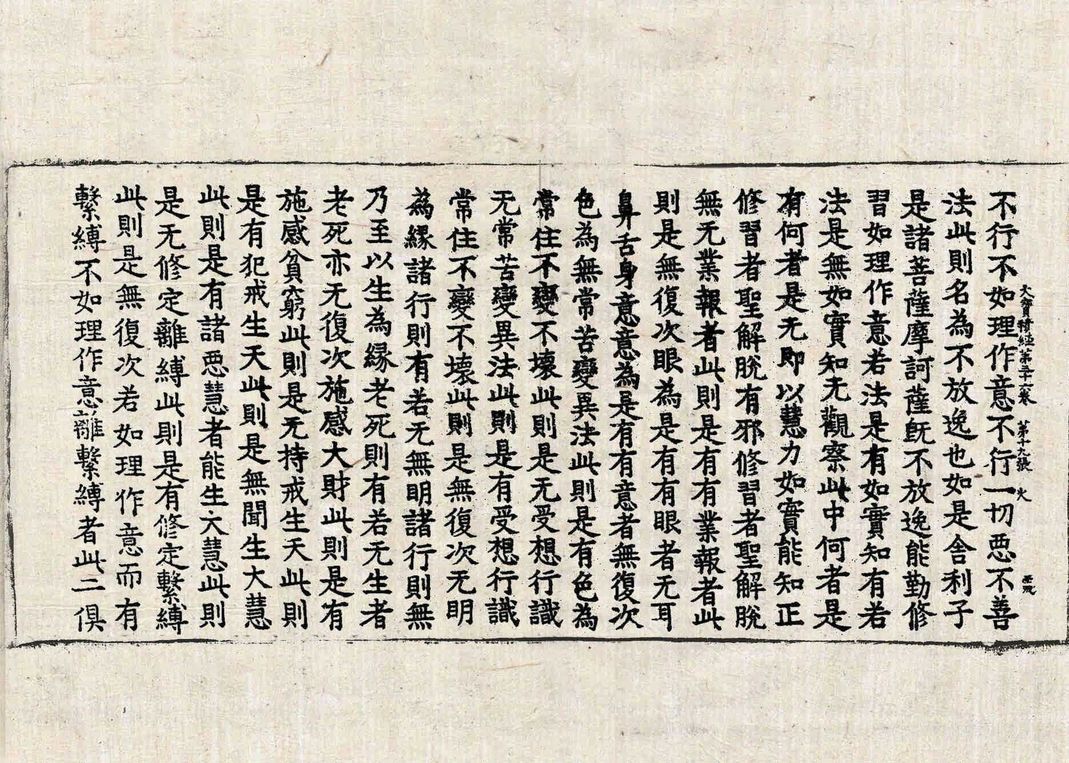 不行不如理作意不行一切悪不善
大寶積經第 卷 第十九張 火
法此則名為不放逸也如是舍利子
是諸菩薩摩訶薩旣不放逸能勤修
習如理作意若法是有如實知有若
法是無如實知无觀察此中何者是
有何者是无即以慧力如實能知正
修習者聖解脫有邪修習者聖解脫
無无業報者此則是有有業報者此
則是無復次眼為是有有眼者无耳
鼻舌身意意為是有有意者無復次
色為無常苦變異法此則是有色為
常住不變不壞此則是无受想行識
无常苦變異法此則是有受想行識
常住不變不壞此則是無復次无明
為緣諸行則有若无無明諸行則無
乃至以生為緣老死則有若无生者
老死亦无復次施感大財此則是有
施感貧窮此則是无持戒生天此則
是有犯戒生天此則是無聞生大慧
此則是有諸悪慧者能生大慧此則
是无修定離縛此則是有修定繫縛
此則是無復次若如理作意而有
繫縛不如理作意離繫縛者此二俱